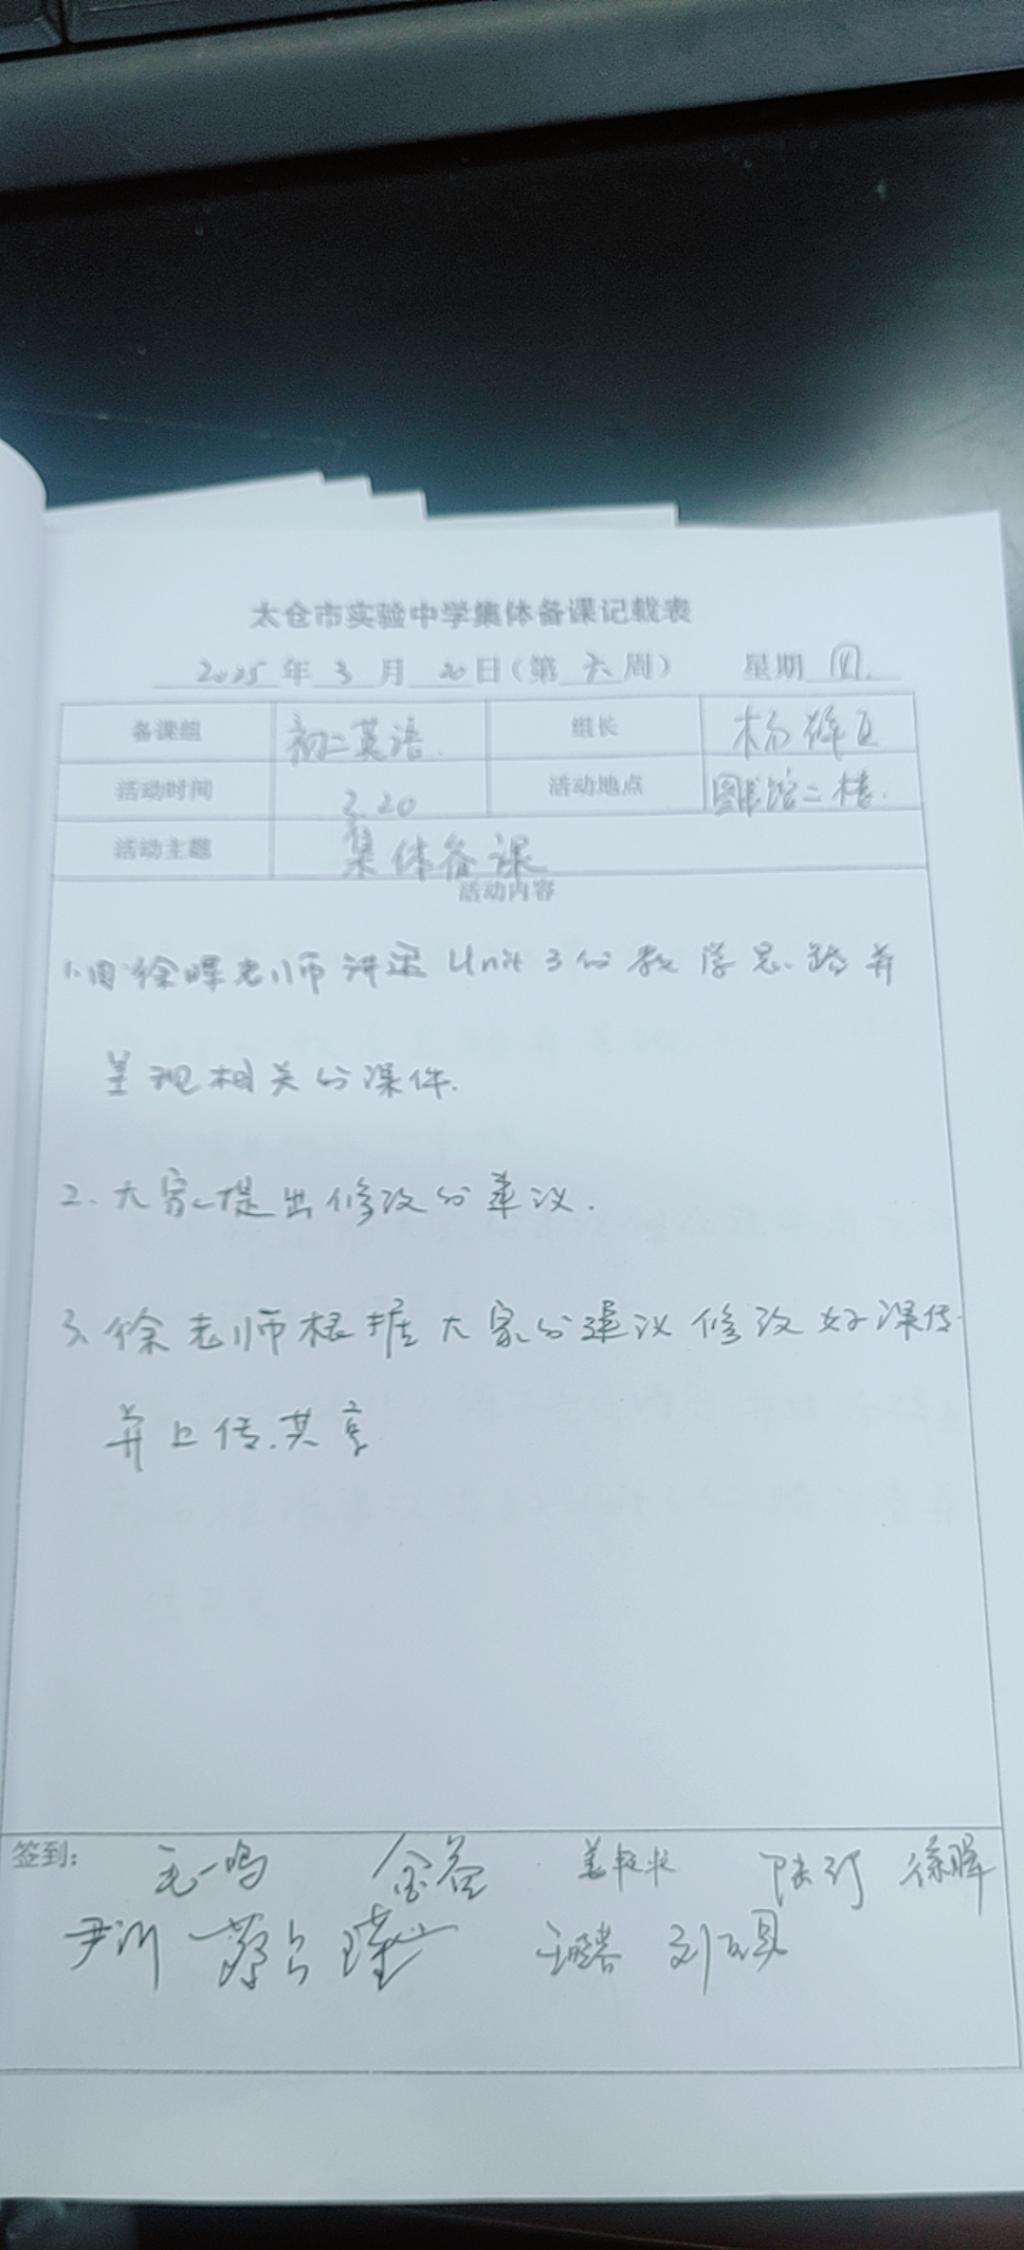 太仓市实验中学集体备课记载表
2025年3月20日(第六周) 星期四.
备课组 初二英语. 组长 杨
活动时间 3.20 活动地点 图书馆二楼.
活动主题 集体备课
活动内容
1.由徐晖老师讲述Unit 3的教学思路并
呈现相关的课件.
2.大家提出修改的建议.
3.徐老师根据大家的建议修改好课件
并上传共享
签到: 毛一鸣 金益 陆订 徐晖
尹川 刘